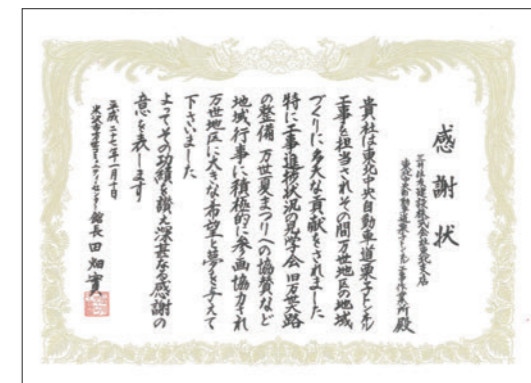 感謝状
三井住友建設株式会社東北支店
東北中央自動車道栗子トンネル工事作業所 殿
貴社は東北中央自動車道栗子トンネル
工事を担当されその間万世地区の地域
づくりに多大な貢献をされました
特に工事進捗状況の見学会 旧万世大路
の整備 万世夏まつりへの協賛など
地域行事に積極的に参画協力され
万世地区に大きな希望と夢を与えて
下さいました
よってその功績を讃え深甚なる感謝の
意を表します
平成二十七年一月十日
米沢市万世コミュニティセンター 館長 田畑 實